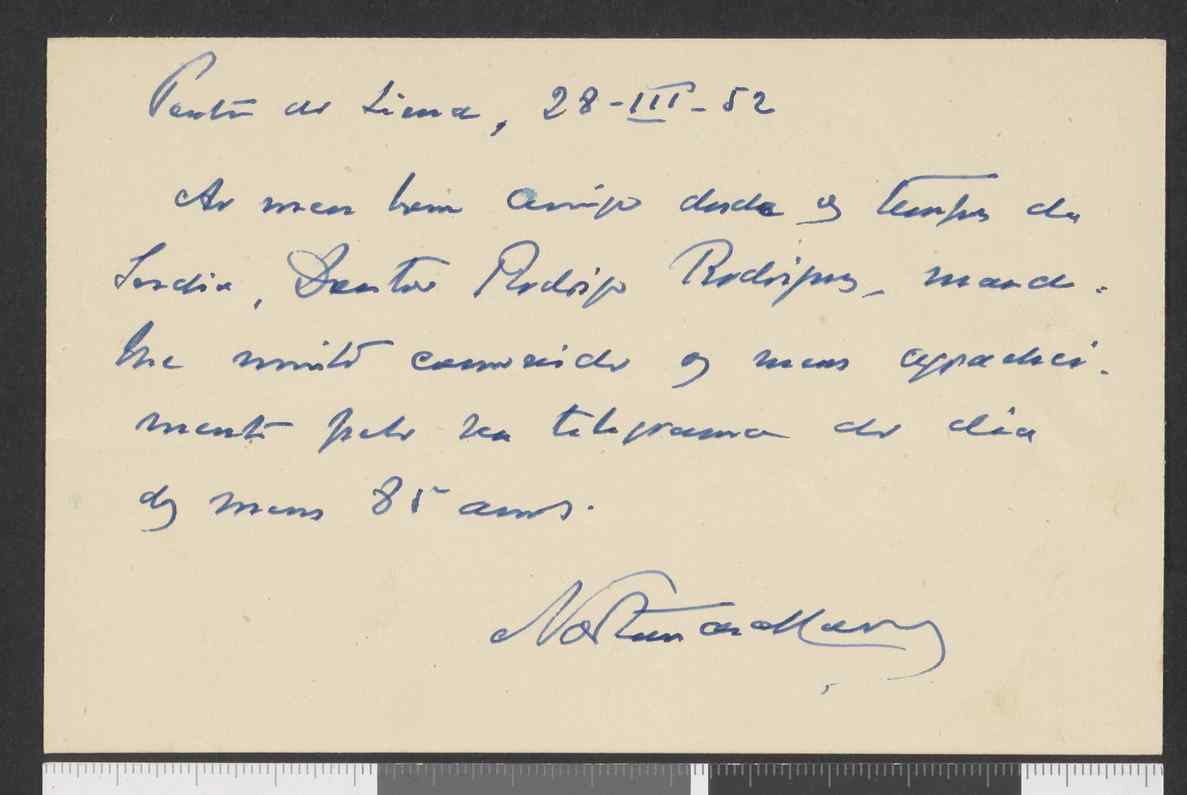 Ponte de Lima, 28-III-52
Ao meu bom amigo desde os tempos da
India, Doutor Rodrigo Rodrigues, mando-
lhe muito comovido os meus agradeci-
mento pelo seu telegrama do dia
dos meus 85 anos.
Norton de Matos